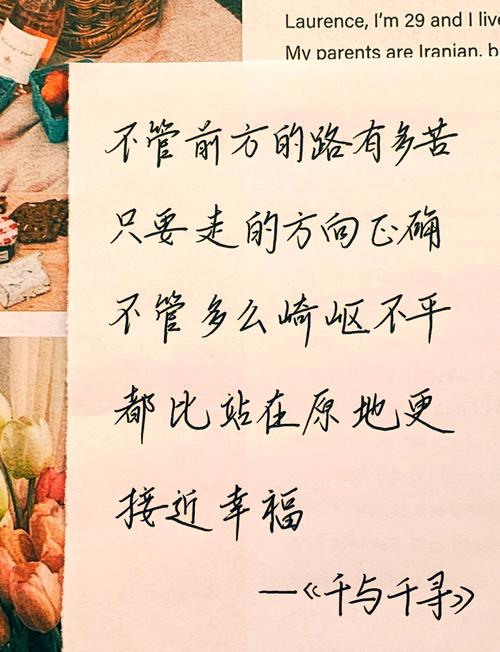 Laurence, I'm 29 and I live
My parents are Iranian, b
不管前方的路有多苦
只要走的方向正确
不管多么崎岖不平
都比站在原地更
接近幸福
—《千与千寻》